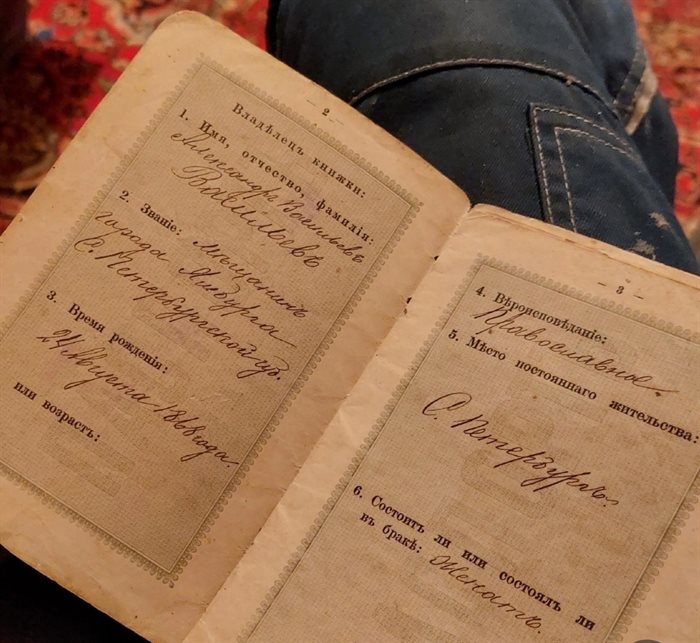 — 2 —
Владѣлецъ книжки:
1. Имя, отчество, фамилія:
Александръ Васильевъ
Васильевъ
2. Званіе: мѣщанинъ
города Ямбурга
С. Петербургской губ.
3. Время рожденія:
24 Августа 1868 года.
или возрастъ:
— 3 —
4. Вѣроисповѣданіе:
Православное.
5. Мѣсто постояннаго жительства:
С. Петербургъ.
6. Состоитъ ли или состоялъ ли
въ бракѣ: Женатъ.